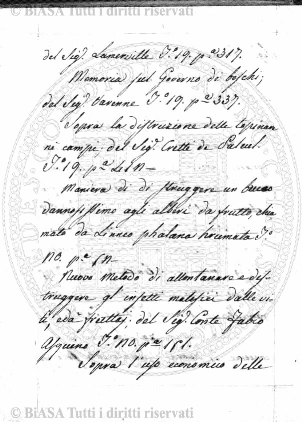 © BIASA Tutti i diritti riservati
del Sig. Lamerville T.o 19. p.a 317.
Memoria sul Governo de boschi;
del Sig. Varenne T.o 19. p.a 337.
Sopra la distruzione delle
ne campi: del Sig. Cretté de Paluel.
T.o 19. p.a
Maniera di distruggere un
dannosissimo agli alberi da frutto chia
mato da Linneo phalana T.o
p.a
Nuovo metodo di allontanare e dis-
truggere gl'insetti malefici dalle vi
ti, e da fruttaj; del Sig. Conte Fabio
Asquino T.o p.a 151.
Sopra l'uso economico delle
© BIASA Tutti i diritti riservati